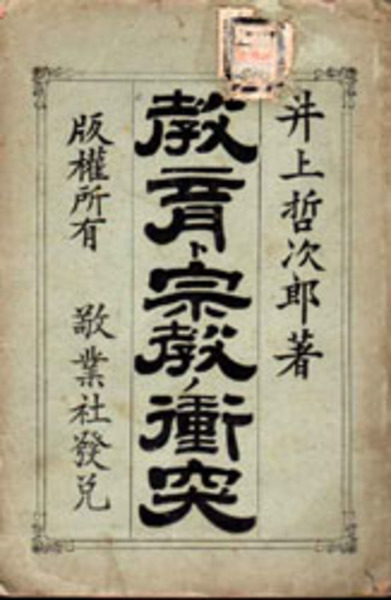 井上哲次郎著
教育ト宗教ノ衝突
版權所有　敬業社發兌